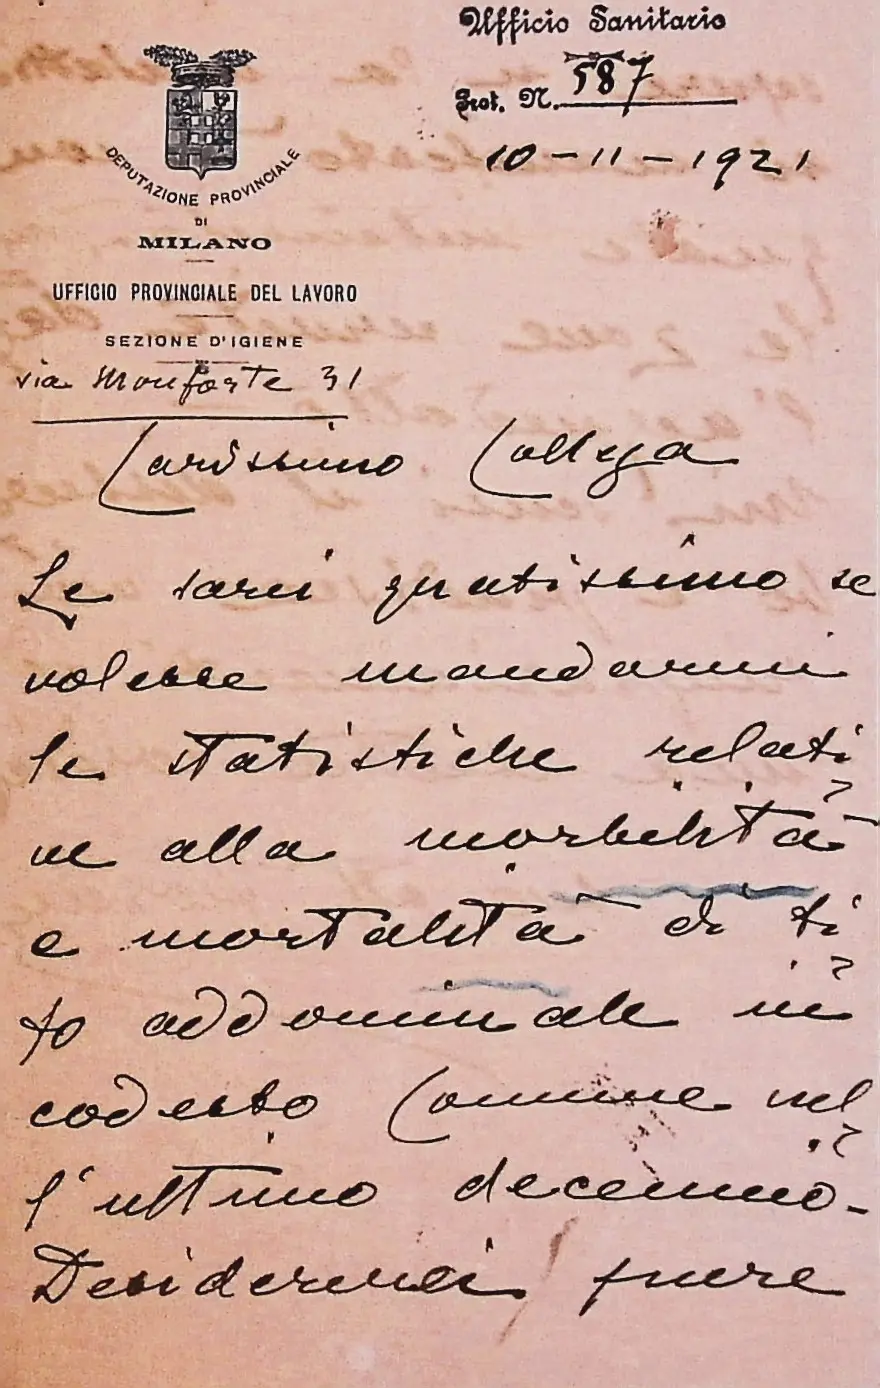 Ufficio Sanitario
Prot. N. 587
10-11-1921
DEPUTAZIONE PROVINCIALE
DI
MILANO
UFFICIO PROVINCIALE DEL LAVORO
SEZIONE D'IGIENE
via Monforte 31
Carissimo Collega
Le sarei gratissimo se
volesse mandarmi
le statistiche relati
ve alla morbilità
e mortalità di ti
fo addominale in
codesto Comune nel
l'ultimo decennio-
Desidererei pure